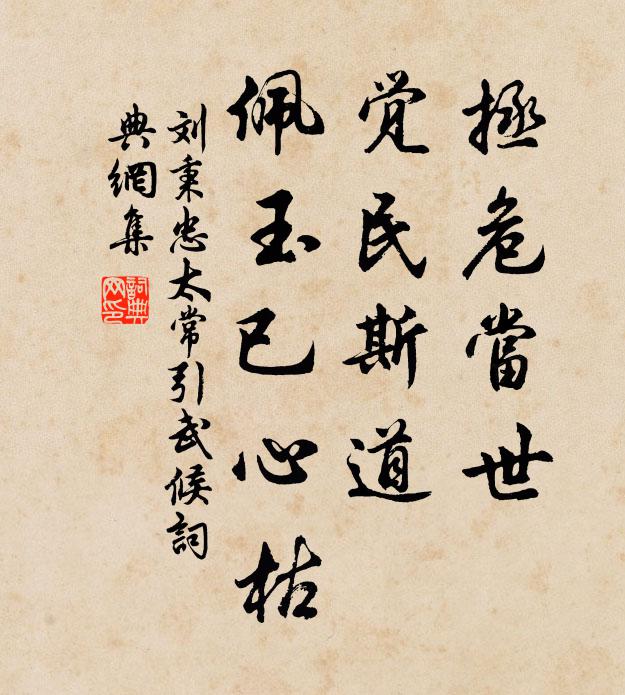 拯危當世
觉民斯道
佩玉已心枯
刘秉忠太常引武候詞
典網集
詞典網印